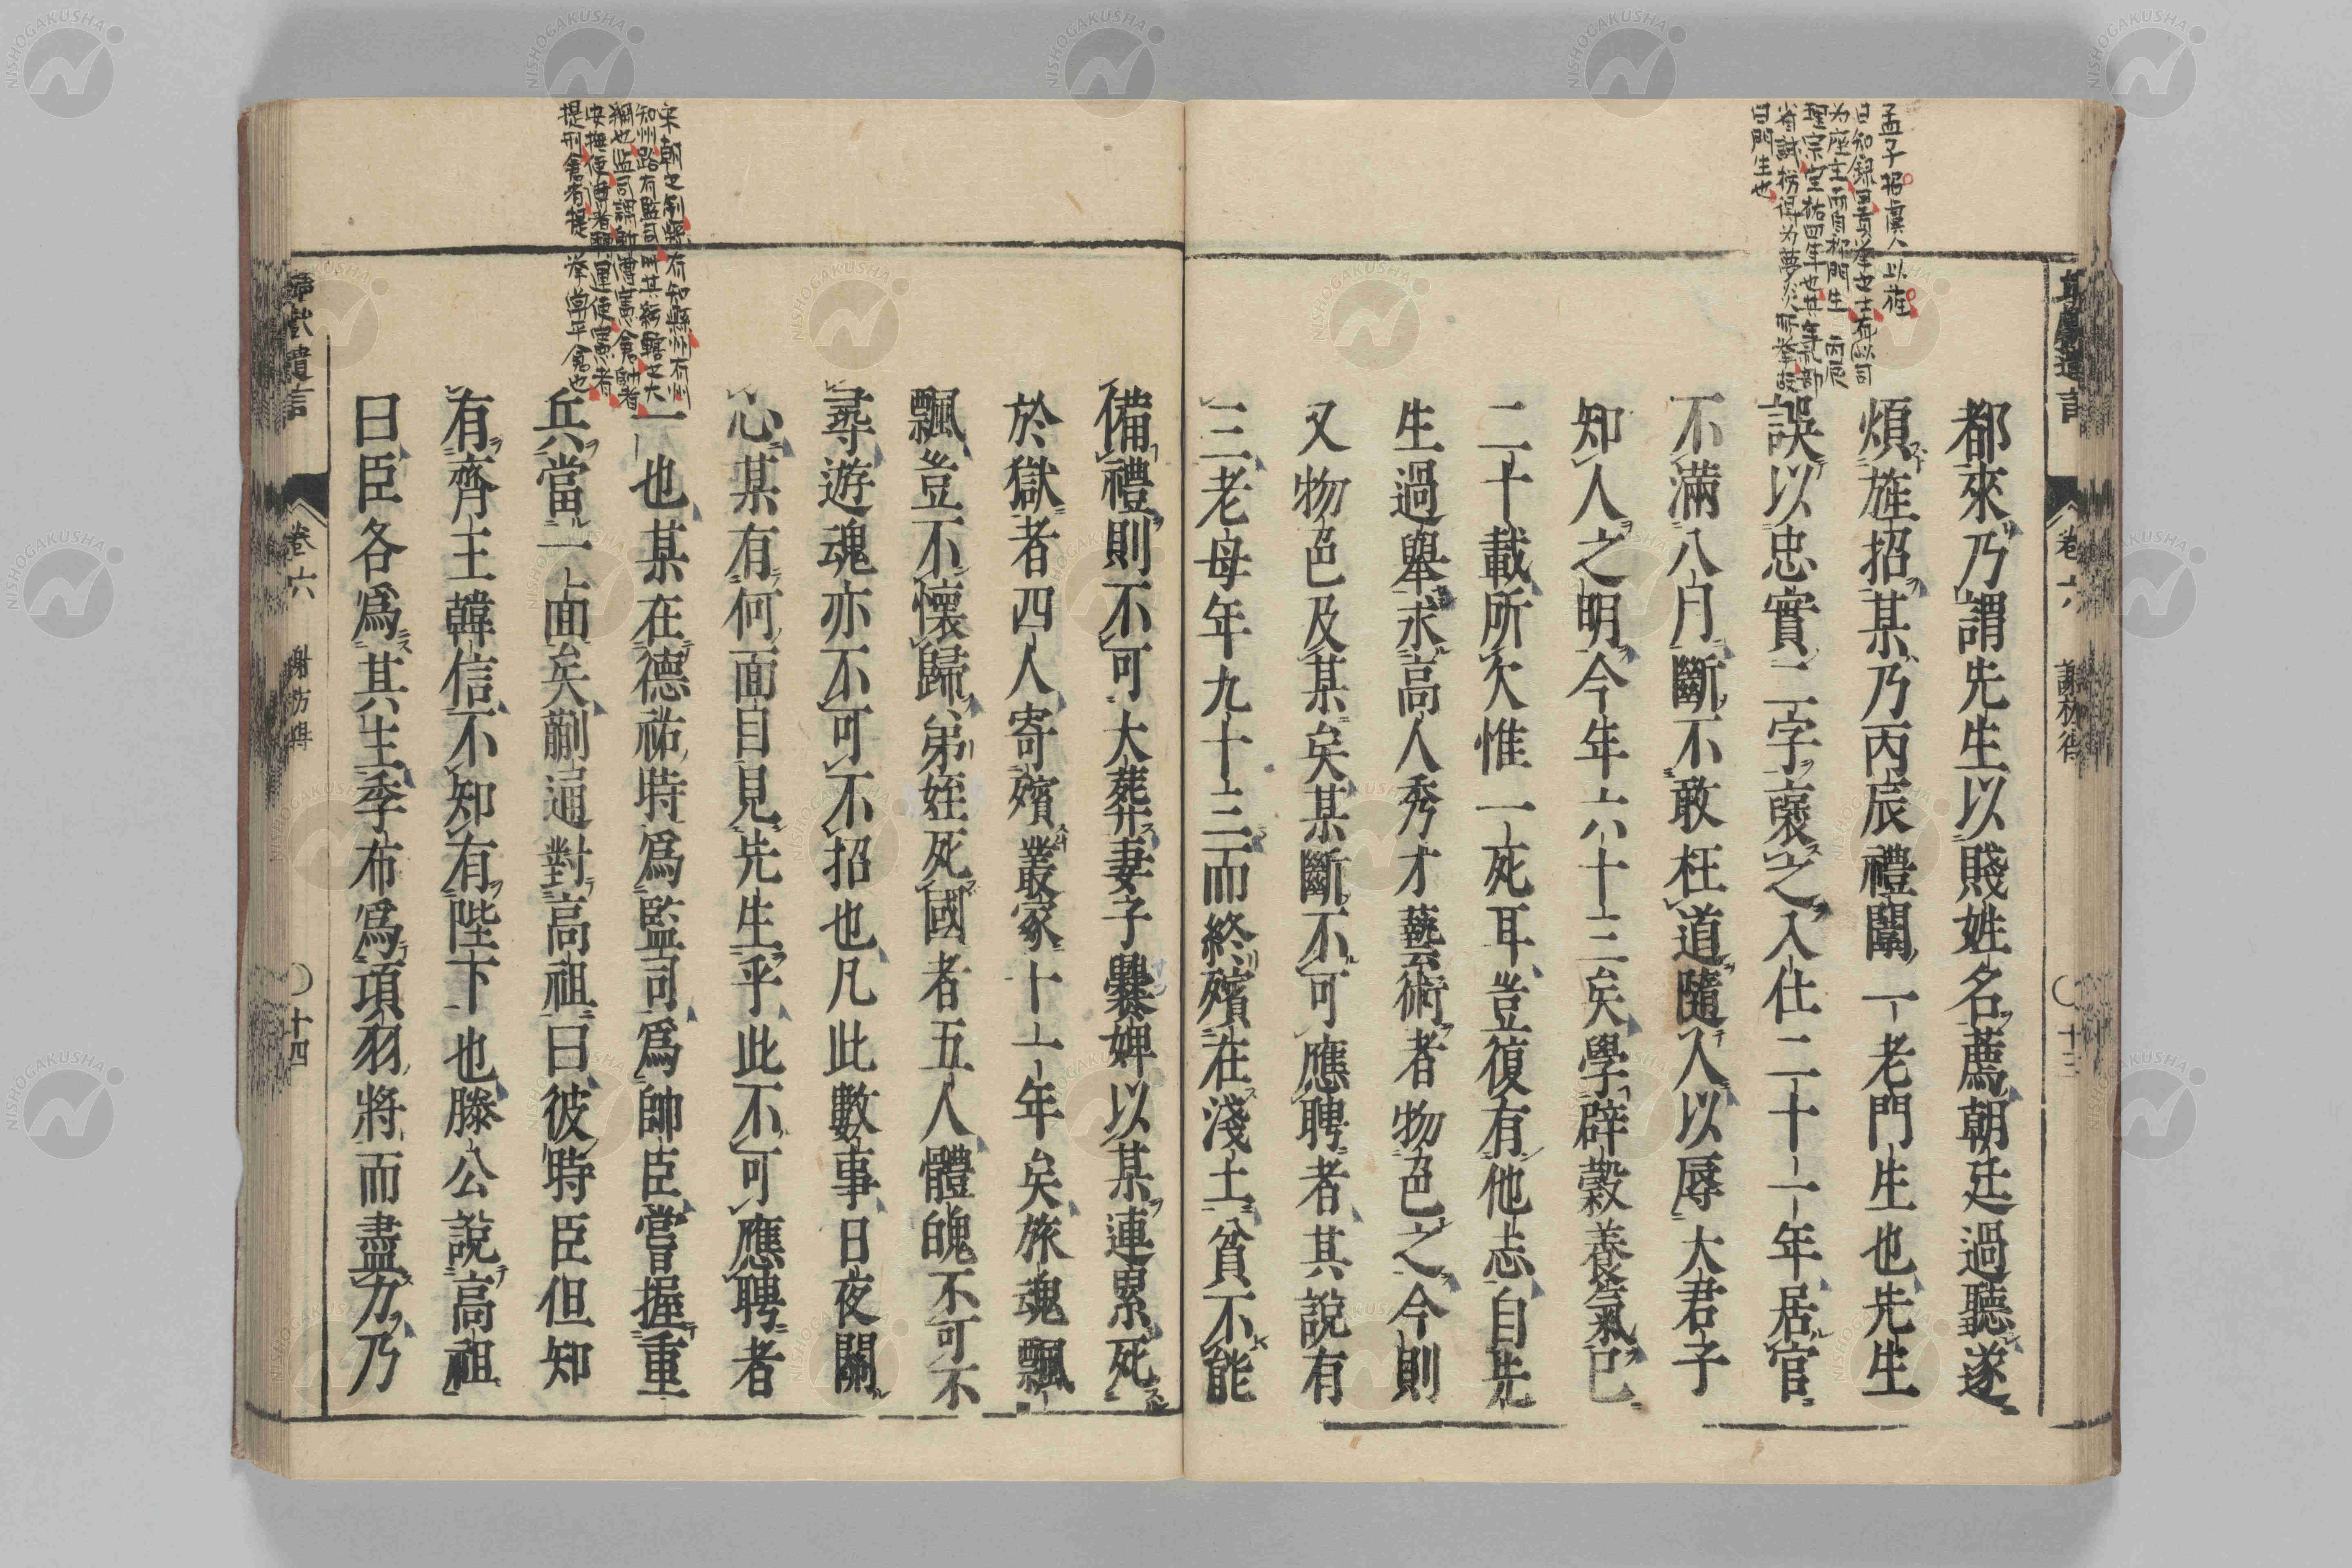 孟子招虞人以旌
日知録貢擧之士有以司
为座主而自称門生 丙辰
理宗宝祐四年也其年礼部
省試枋得为夢炎所挙故
曰門生也
都來乃謂先生以賤姓名薦朝廷過聽遂
煩旌招某乃丙辰禮闈一老門生也先生
誤以忠實二字褒之入仕二十一年居官
不滿八月斷不敢枉道隨人以辱大君子
知人之明今年六十三矣學辟穀養氣已
二十載所欠惟一死耳豈復有他志自先
生過擧求高人秀才藝術者物色之今則
又物色及某矣某斷不可應聘者其說有
三老母年九十三而終殯在淺土貧不能
備禮則不可大葬妻子爨婢以某連累死
於獄者四人寄殯叢冢十一年矣旅魂飄
飄豈不懷歸弟姪死國者五人體魄不可不
尋遊魂亦不可不招也凡此數事日夜關
心某有何面目見先生乎此不可應聘者
一也某在德祐時爲監司爲帥臣嘗握重
兵當一面矣蒯通對高祖曰彼時臣但知
有齊王韓信不知有陛下也滕公說高祖
曰臣各爲其主季布爲項羽將而盡力乃
宋朝之制縣有知縣州有州
知州路有監司
安撫使漕者轉運使憲者
提刑倉者提 挙常平倉也
靖獻遺言
卷六
謝枋得
○十三
卷六
謝枋得
○十四